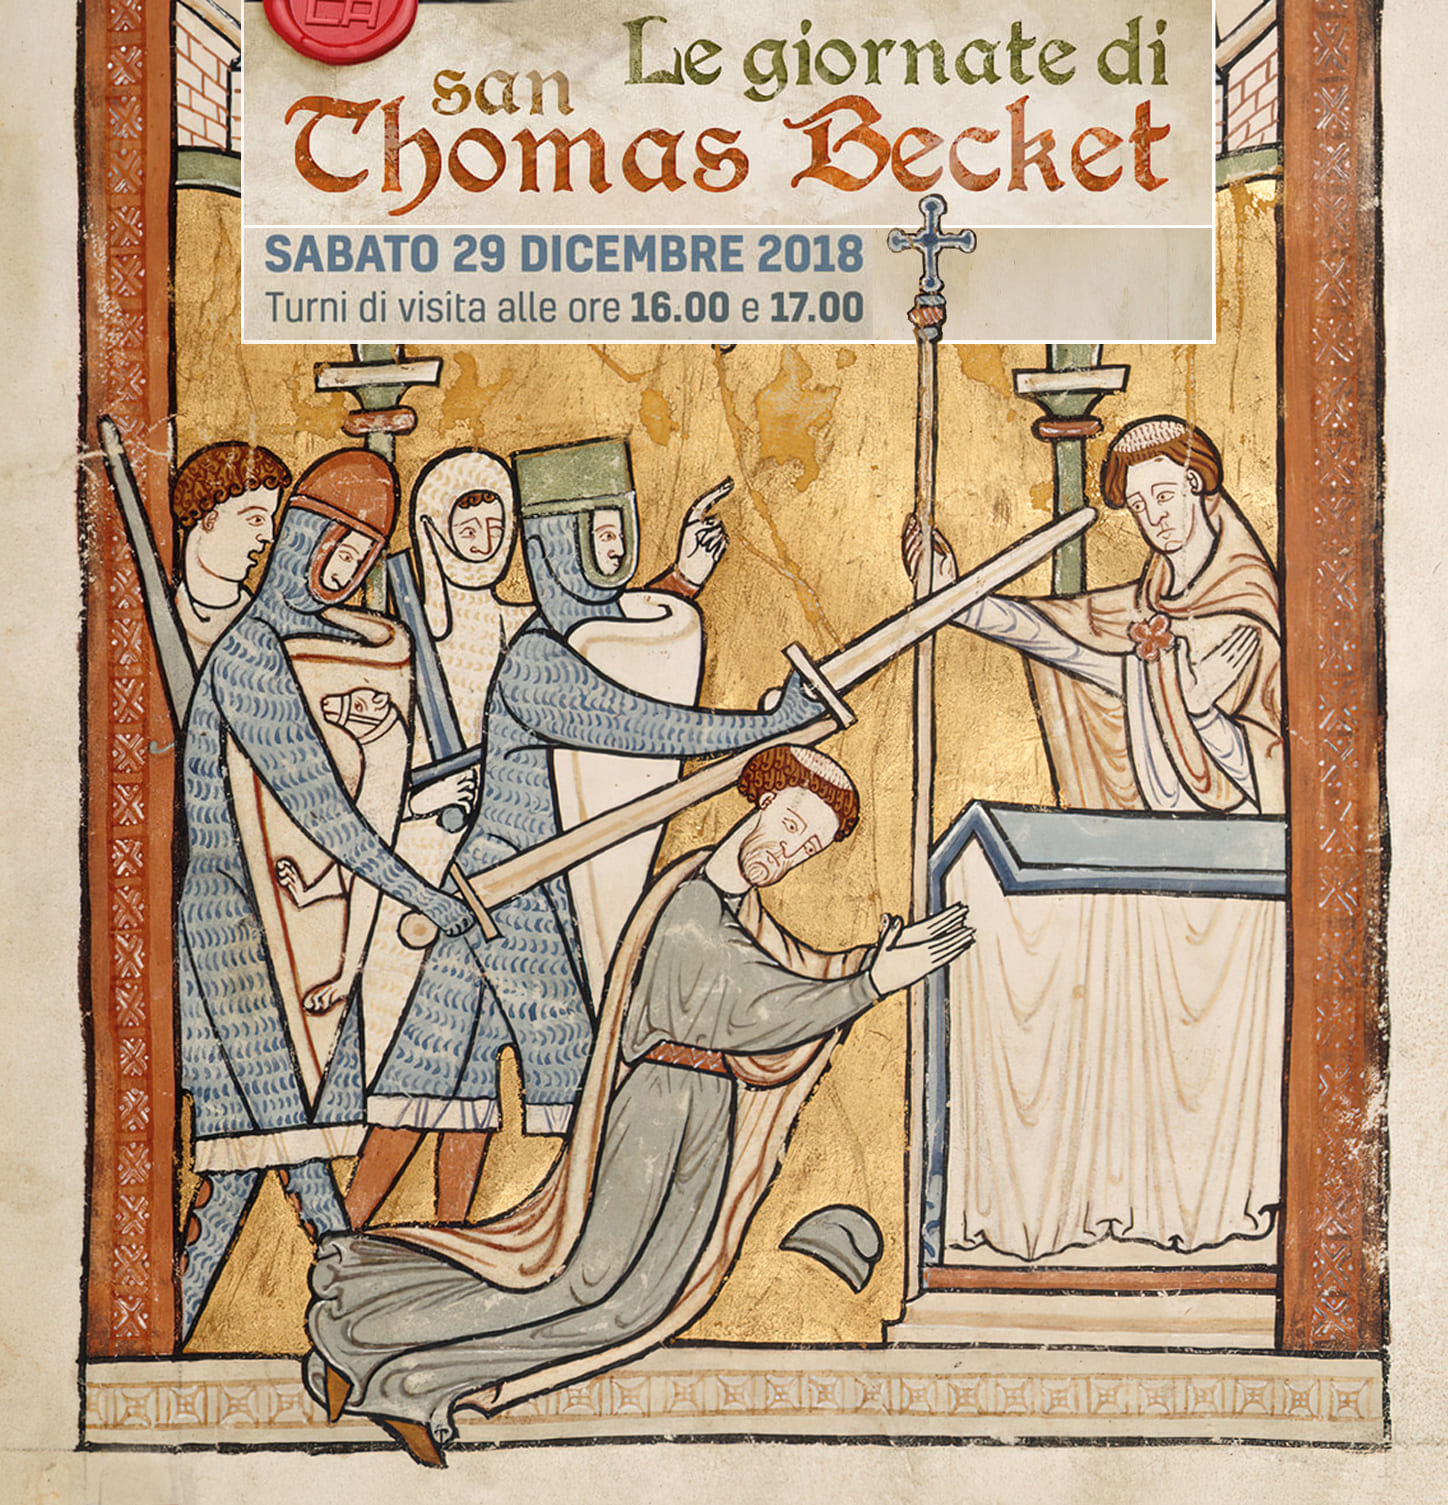 Le giornate di
san
Thomas Becket
SABATO 29 DICEMBRE 2018
Turni di visita alle ore 16.00 e 17.00